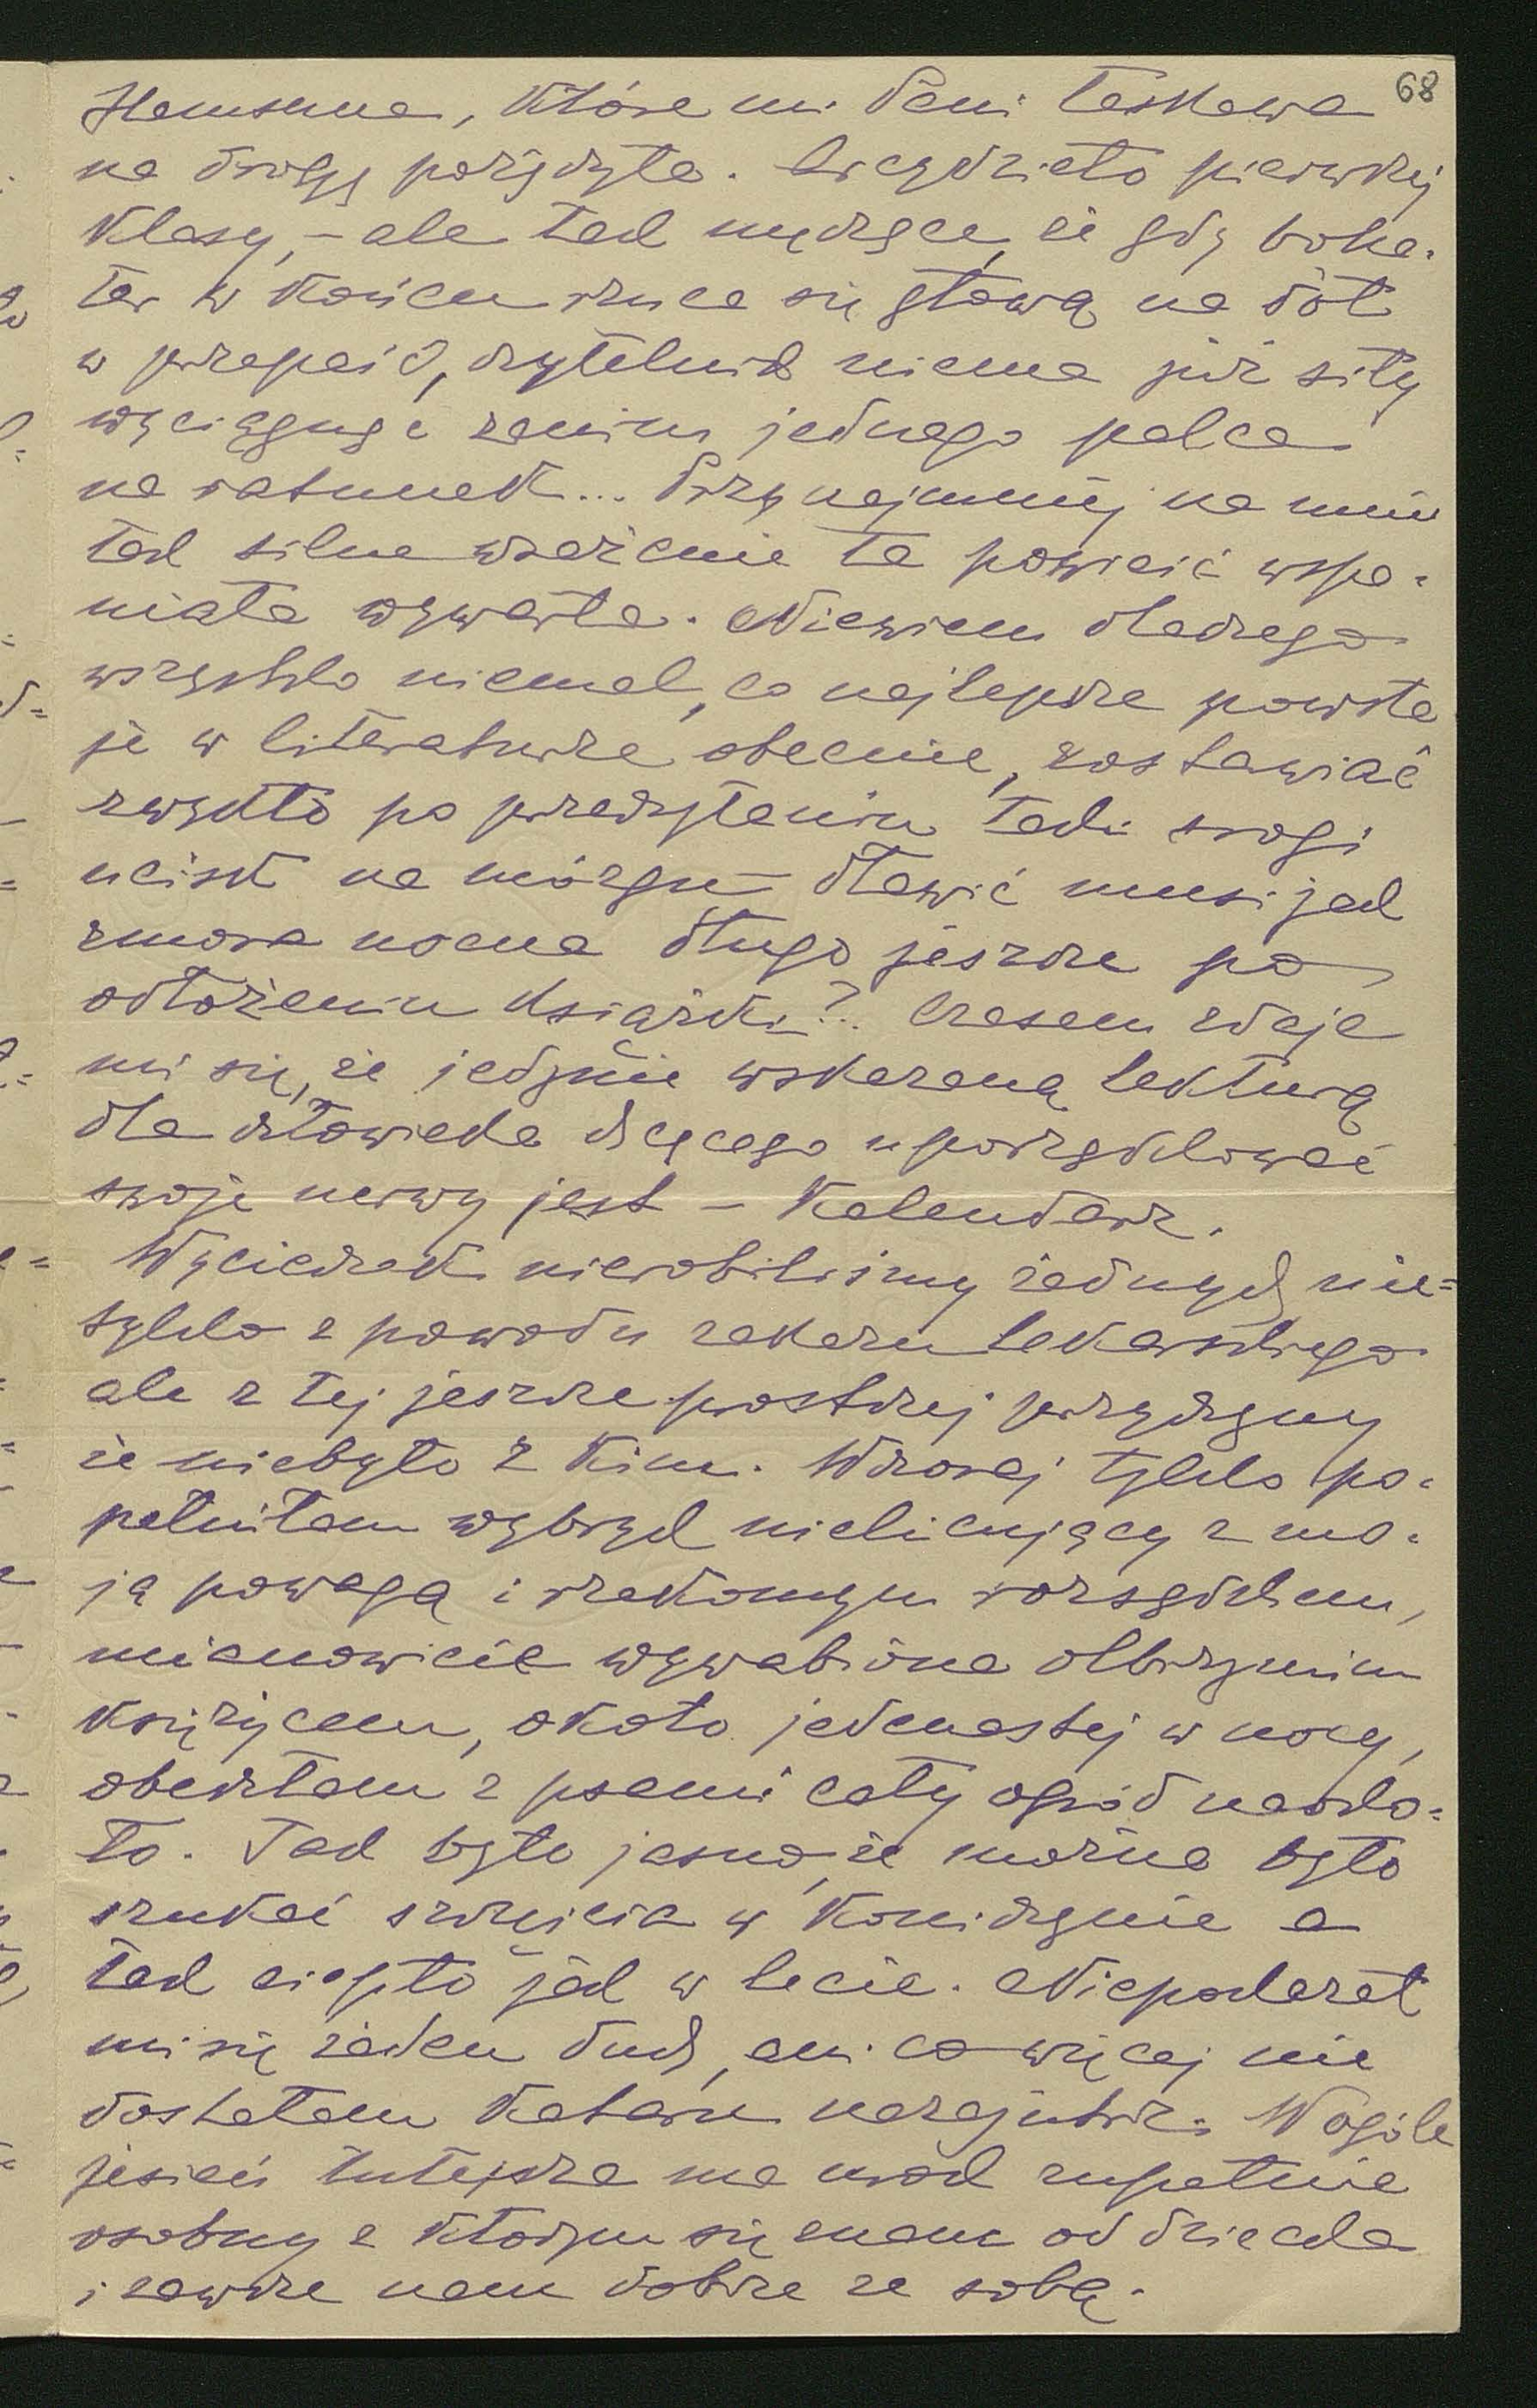 68
Hamsuna, które mi Pani łaskawa
na drogę pożyczyła. Arcydzieło pierwszej
klasy, – ale tak męczące, że gdy boha-
ter w końcu rzuca się głową na dół
w przepaść, czytelnik niema już siły
wyciągnąć zanim jednego palca
na ratunek... Przynajmniej na mnie
tak silne wrażenie ta powieść wspa-
niała wywarła. Niewiem dlaczego
wszystko niemal, co najlepsze powsta
je w literaturze obecnie, zostawiać
zwykło po przeczytaniu taki srogi
ucisk na mózgu – dławić musi jak
zmora nocna długo jeszcze po
odłożeniu książki?.. Czasem zdaje
mi się, że jedynie wskazaną lekturą
dla człowieka chcącego uporządkować
swoje nerwy jest – Kalendarz.
Wycieczek nierobiliśmy żadnych nie=
tylko z powodu zakazu lekarskiego
ale z tej jeszcze prostszej przyczyny
że niebyło z kim. Wczoraj tylko po-
pełniłam wybryk nielicujący z mo-
ją powagą i rzekomym rozsądkiem,
mianowicie wywabiona olbrzymim
księżycem, około jedenastej w nocy,
obeszłam z psami cały ogród naoko=
ło. Tak było jasno, że można było
szukać szczęścia w koniczynie a
tak ciepło jak w lecie. Niepokazał
mi się żaden duch, ani co więcej nie
dostałam kataru nazajutrz. Wogóle
jesień tutejsza ma urok zupełnie
osobny z którym się znam od dziecka
i zawsze nam dobrze ze sobą.